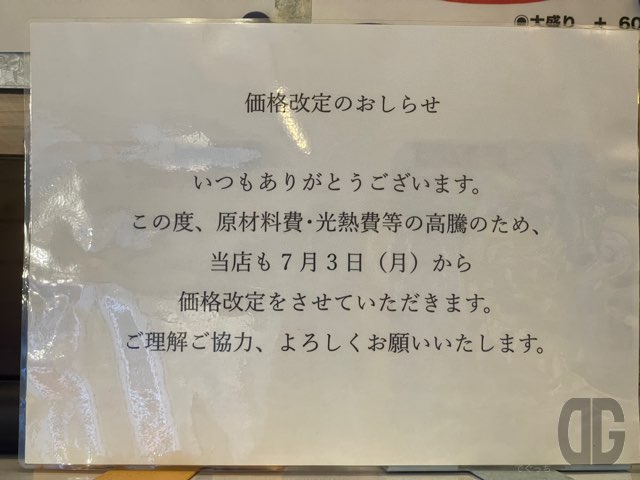 ◉大盛り ＋ 60
価格改定のおしらせ
いつもありがとうございます。
この度、原材料費・光熱費等の高騰のため、
当店も７月３日（月）から
価格改定をさせていただきます。
ご理解ご協力、よろしくお願いいたします。
DG